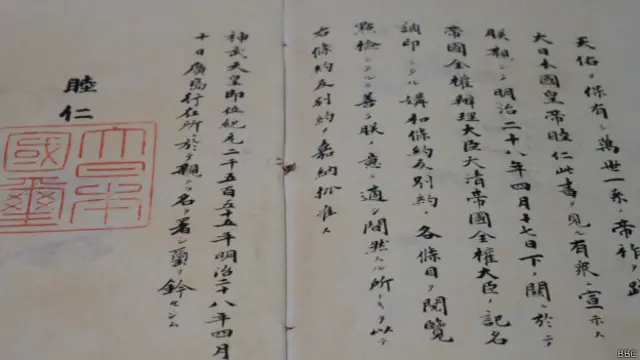 天佑ヲ保有シ萬世一系ノ帝祚ヲ
大日本國皇帝睦仁此書ヲ見ル有衆ニ宣示ス
朕親シク明治二十八年四月十七日下ノ關ニ於テ
帝國全權辦理大臣大清帝國全權大臣ノ記名
調印シタル講和條約及別約ノ各條目ヲ閲覽
點檢シタルニ善ク朕カ意ニ適シ間然スル所ナキヲ以テ
右條約及別約ヲ嘉納批准ス
神武天皇即位紀元二千五百五十五年明治二十八年四月
十日廣島行在所ニ於テ親ラ名ヲ署シ璽ヲ鈐セシム
睦仁
大日本國璽
BBC